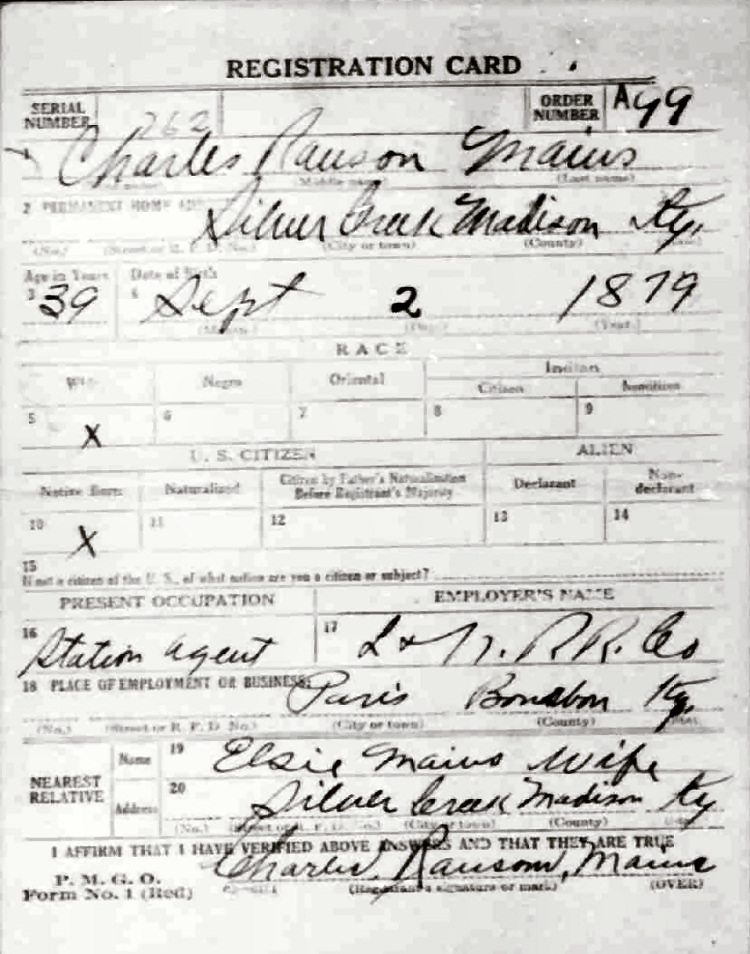 REGISTRATION CARD
SERIAL NUMBER 262 ORDER NUMBER A99
Charles Ranson Mains
(Middle name) (Last name)
2 PERMANENT HOME
Silver Creek Madison Ky.
(No.) (Street or R. F. D. No.) (City or town) (County)
Age in Years Date of Birth
3 39 4 Sept 2 1879
(Month) (Day) (Year)
RACE
White Negro Oriental Indian
Citizen Noncitizen
5 X 6 7 8 9
U. S. CITIZEN ALIEN
Native Born Naturalized Citizen by Father's Naturalization Before Registrant's Majority Declarant Non-declarant
10 X 11 12 13 14
15
If not a citizen of the U. S., of what nation are you a citizen or subject?
PRESENT OCCUPATION EMPLOYER'S NAME
16 Station agent 17 L & N. R.R. Co
18 PLACE OF EMPLOYMENT OR BUSINESS:
Paris Bourbon Ky.
(No.) (Street or R. F. D. No.) (City or town) (County)
NEAREST RELATIVE
Name 19 Elsie Mains Wife
Address 20 Silver Creek Madison Ky
(No.) (Street or R. F. D. No.) (City or town) (County)
I AFFIRM THAT I HAVE VERIFIED ABOVE ANSWERS AND THAT THEY ARE TRUE
Charles, Ransom, Mains
P. M. G. O.
Form No. 1 (Red) (Registrant's signature or mark) (OVER)